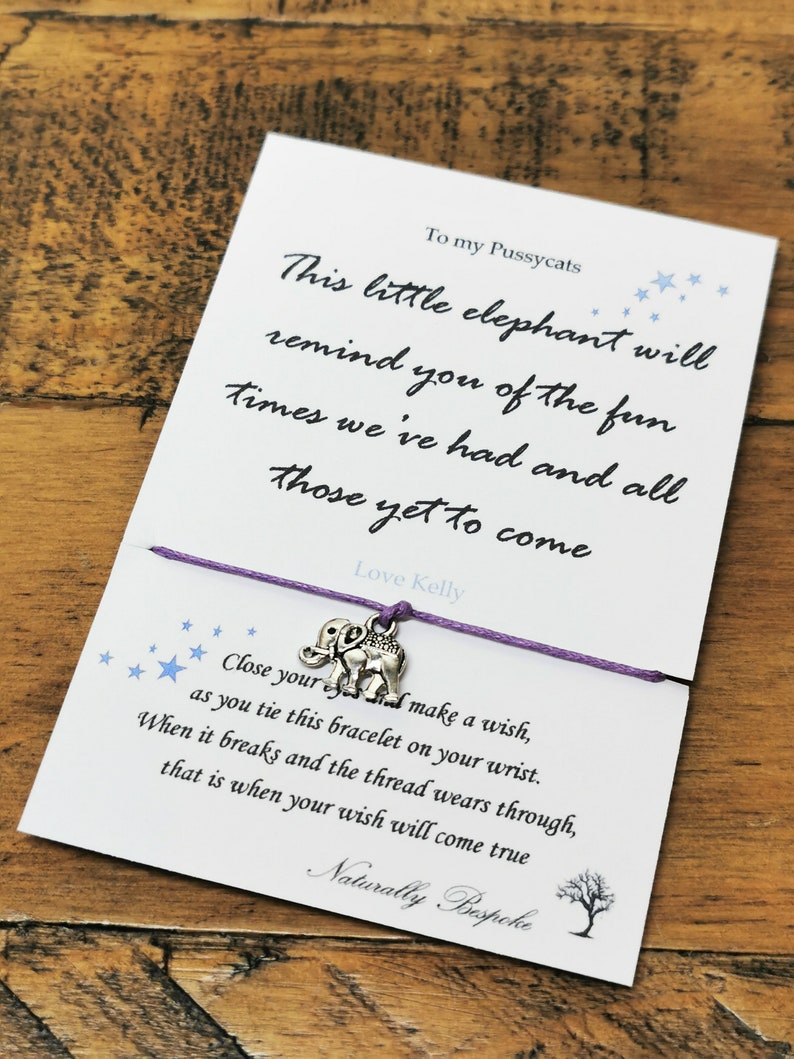 To my Pussycats
This little elephant will
remind you of the fun
times we've had and all
those yet to come
Love Kelly
Close your eyes and make a wish,
as you tie this bracelet on your wrist.
When it breaks and the thread wears through,
that is when your wish will come true
Naturally Bespoke